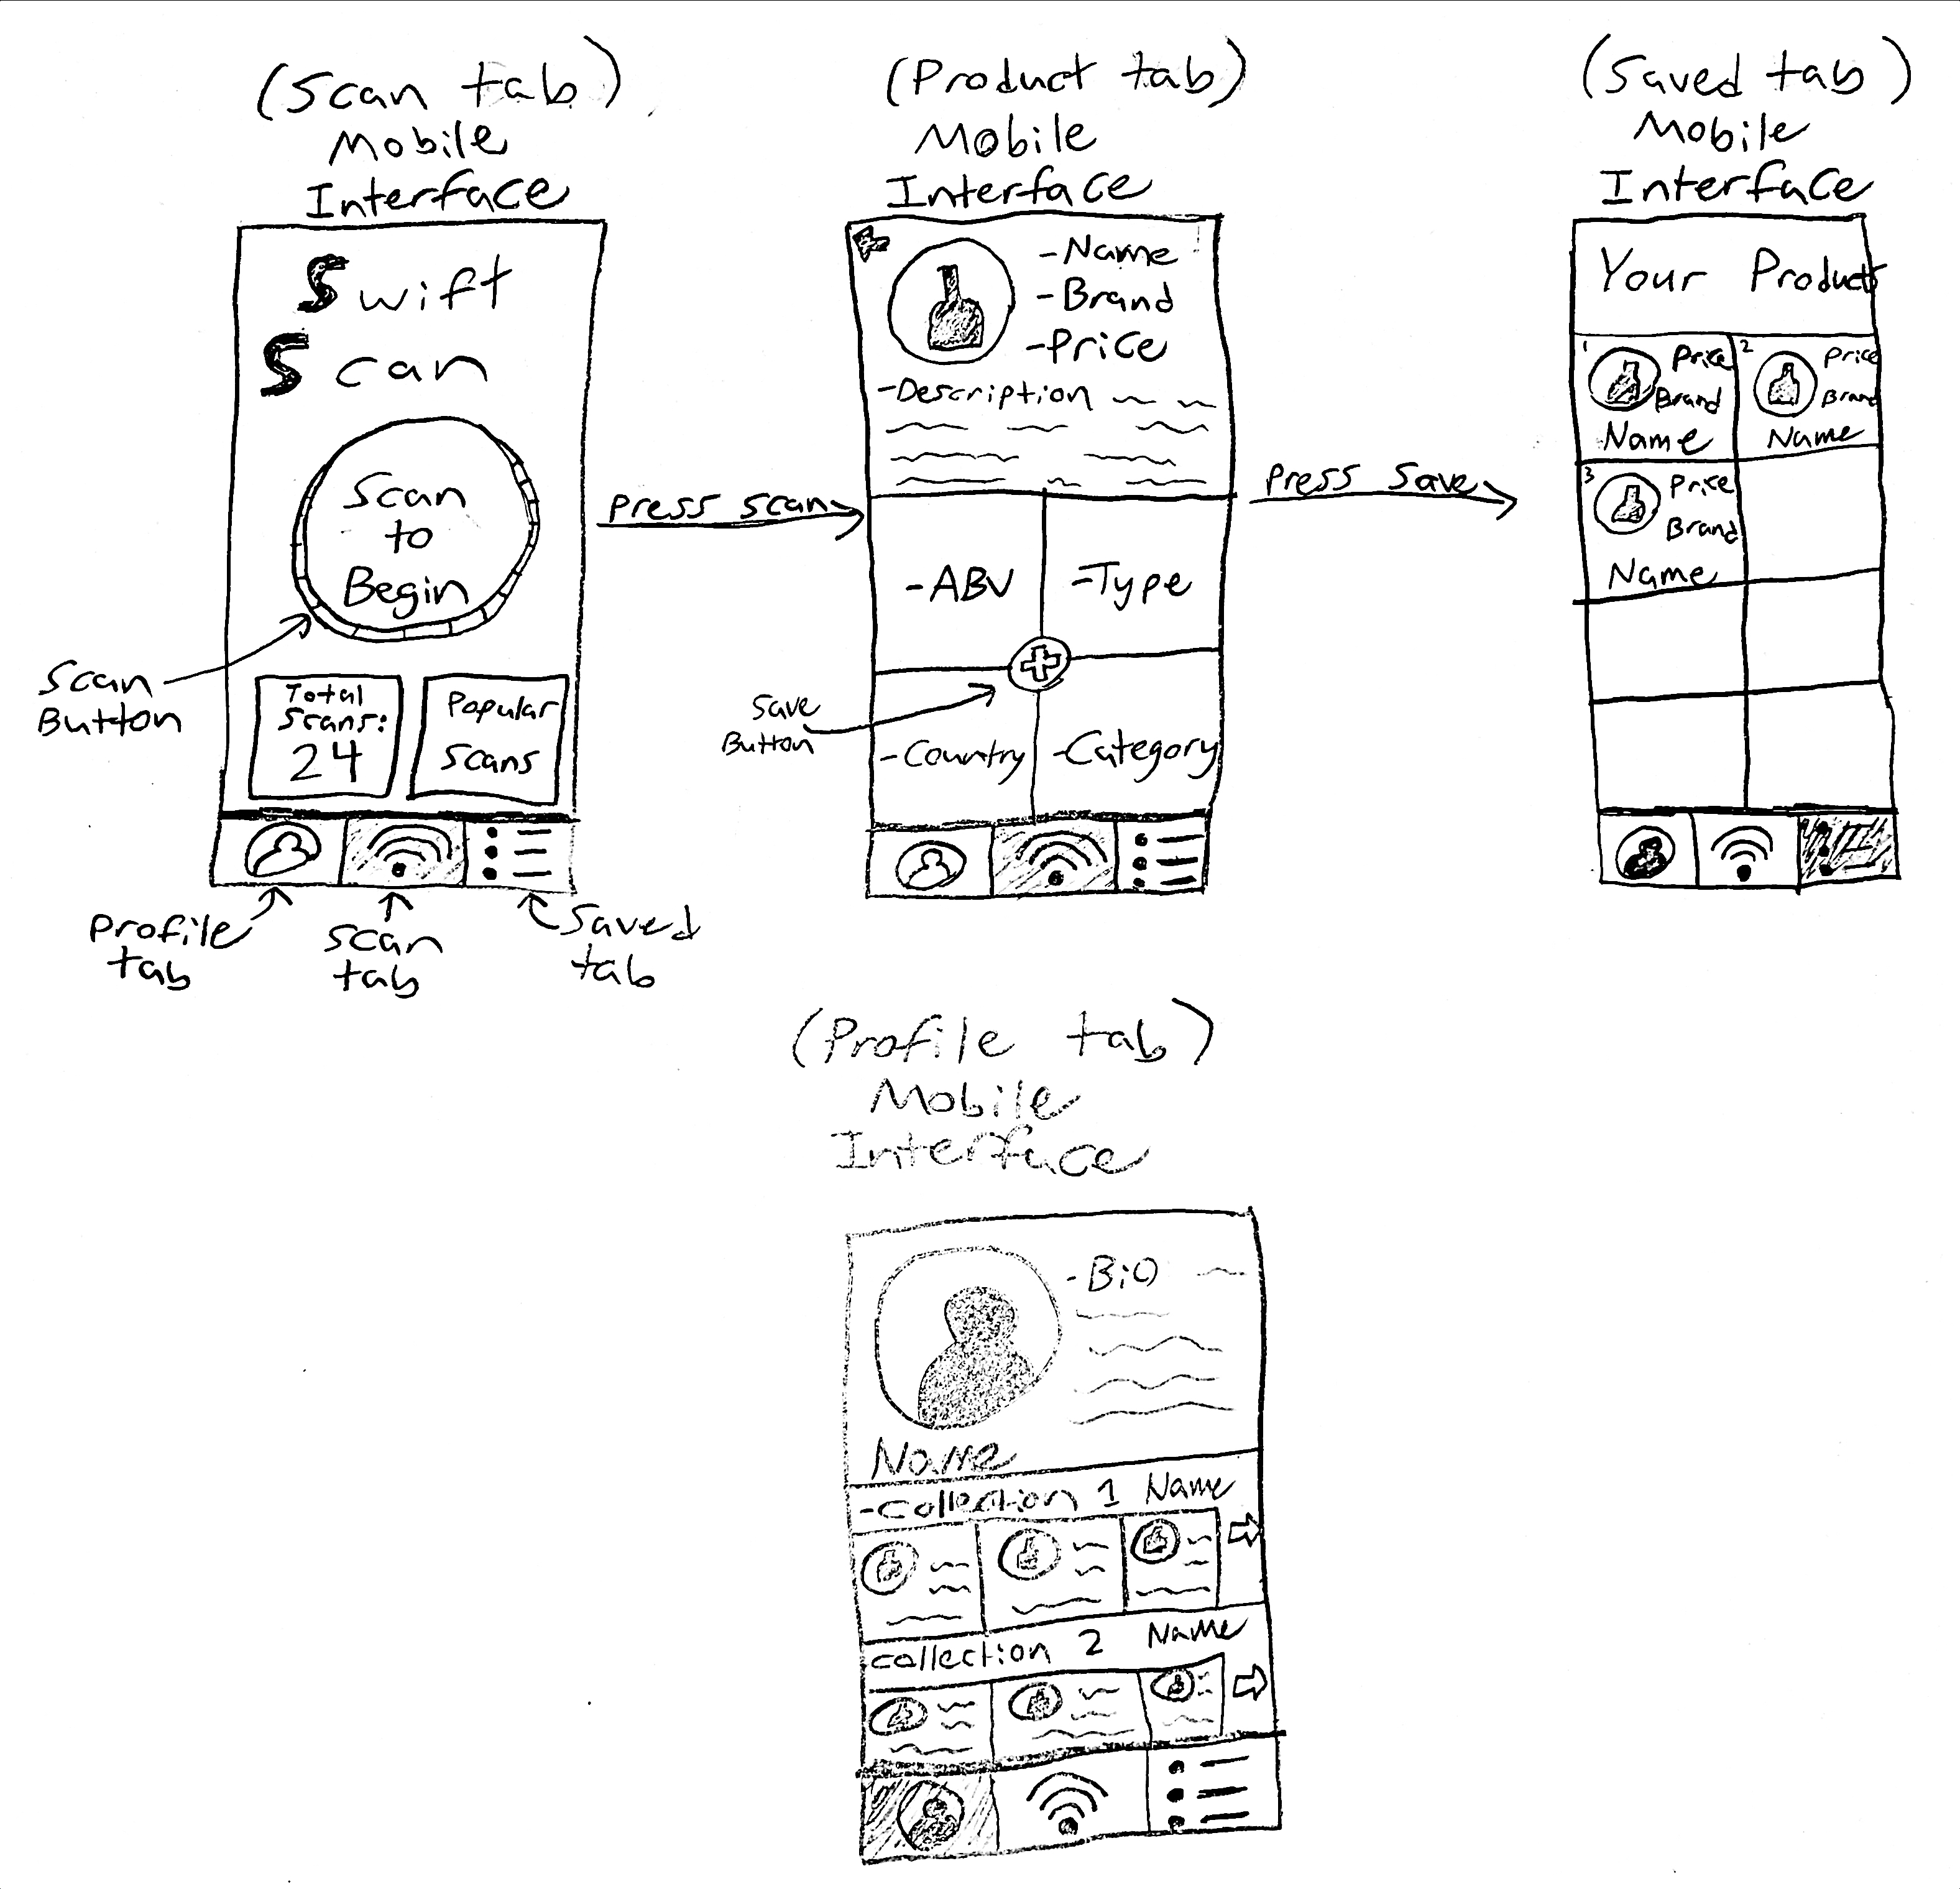 (Scan tab)
Mobile
Interface
Swift
Scan
Scan
to
Begin
Scan
Button
Total
Scans:
24
Popular
Scans
Profile
tab
Scan
tab
Saved
tab
Press Scan
(Product tab)
Mobile
Interface
-Name
-Brand
-Price
-Description
-ABV
-Type
Save
Button
-Country
-Category
Press Save
(Saved tab)
Mobile
Interface
Your Products
1
Price
Brand
Name
2
Price
Brand
Name
3
Price
Brand
Name
(Profile tab)
Mobile
Interface
-Bio
Name
-Collection 1 Name
Collection 2 Name